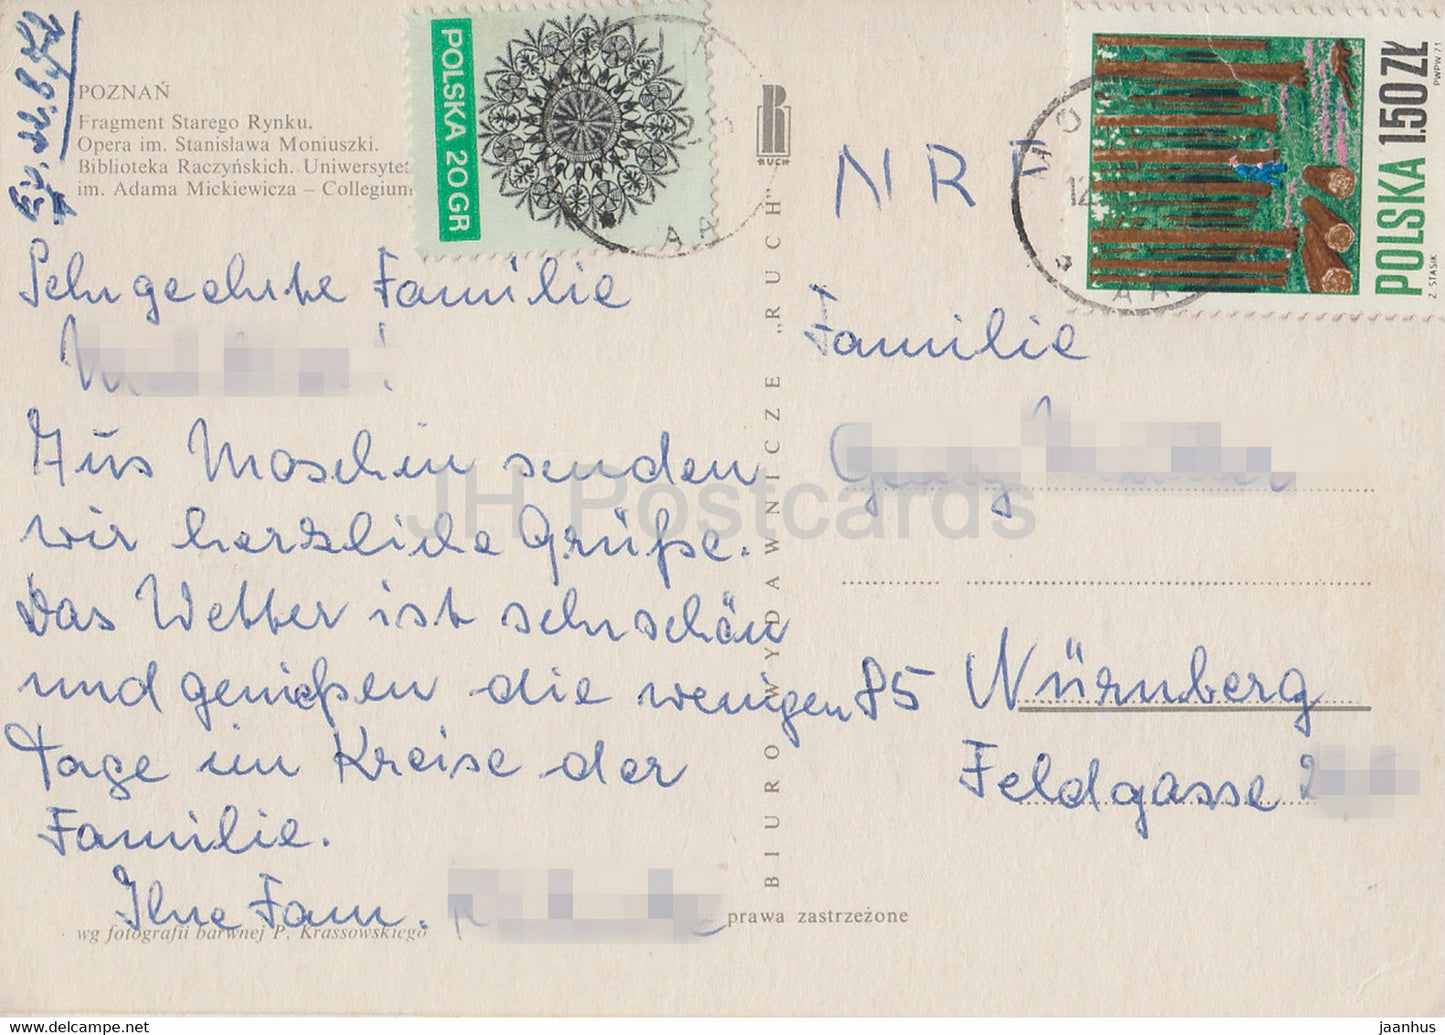 POZNAŃ
Fragment Starego Rynku.
Opera im. Stanisława Moniuszki.
Biblioteka Raczyńskich. Uniwersytet
im. Adama Mickiewicza – Collegium
POLSKA 20 GR
RUCH
NRF
POLSKA 1.50 ZŁ
PWPW 71
Z. STASIK
AA
AA
12
Sehr geehrte Familie
Aus Moschin senden
wir herzliche Grüße.
Das Wetter ist sehr schön
und genießen die wenigen
Tage im Kreise der
Familie.
Ihre Fam.
wg fotografii barwnej P. Krassowskiego
BIURO WYDAWNICZE „RUCH"
prawa zastrzeżone
Familie
Georg
85 Nürnberg
Feldgasse 2
JH Postcards
jaanhus @ www.delcampe.net